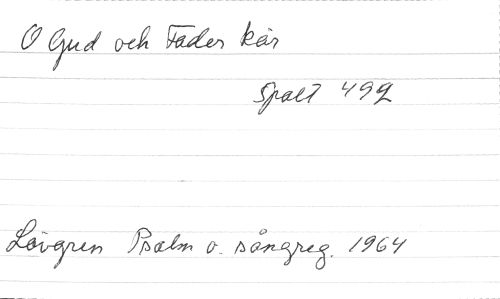 O Gud och Fader kär
Spalt 492
Lövgren Psalm o. sångreg. 1964